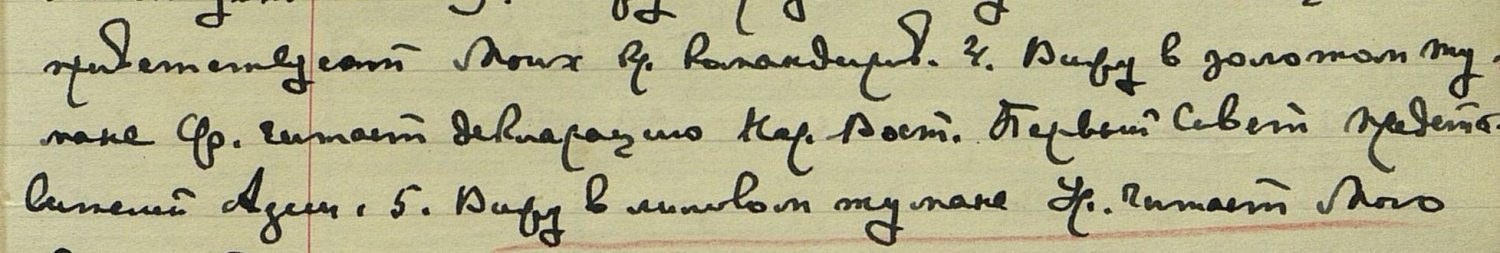 приветствует Моих кр. командиров. 4. Вижу в золотом ту-
мане Фр. читает декларацию Нар. Вост. Первый Совет предста-
вителей Азии. 5. Вижу в лиловом тумане Ур. читает Мою